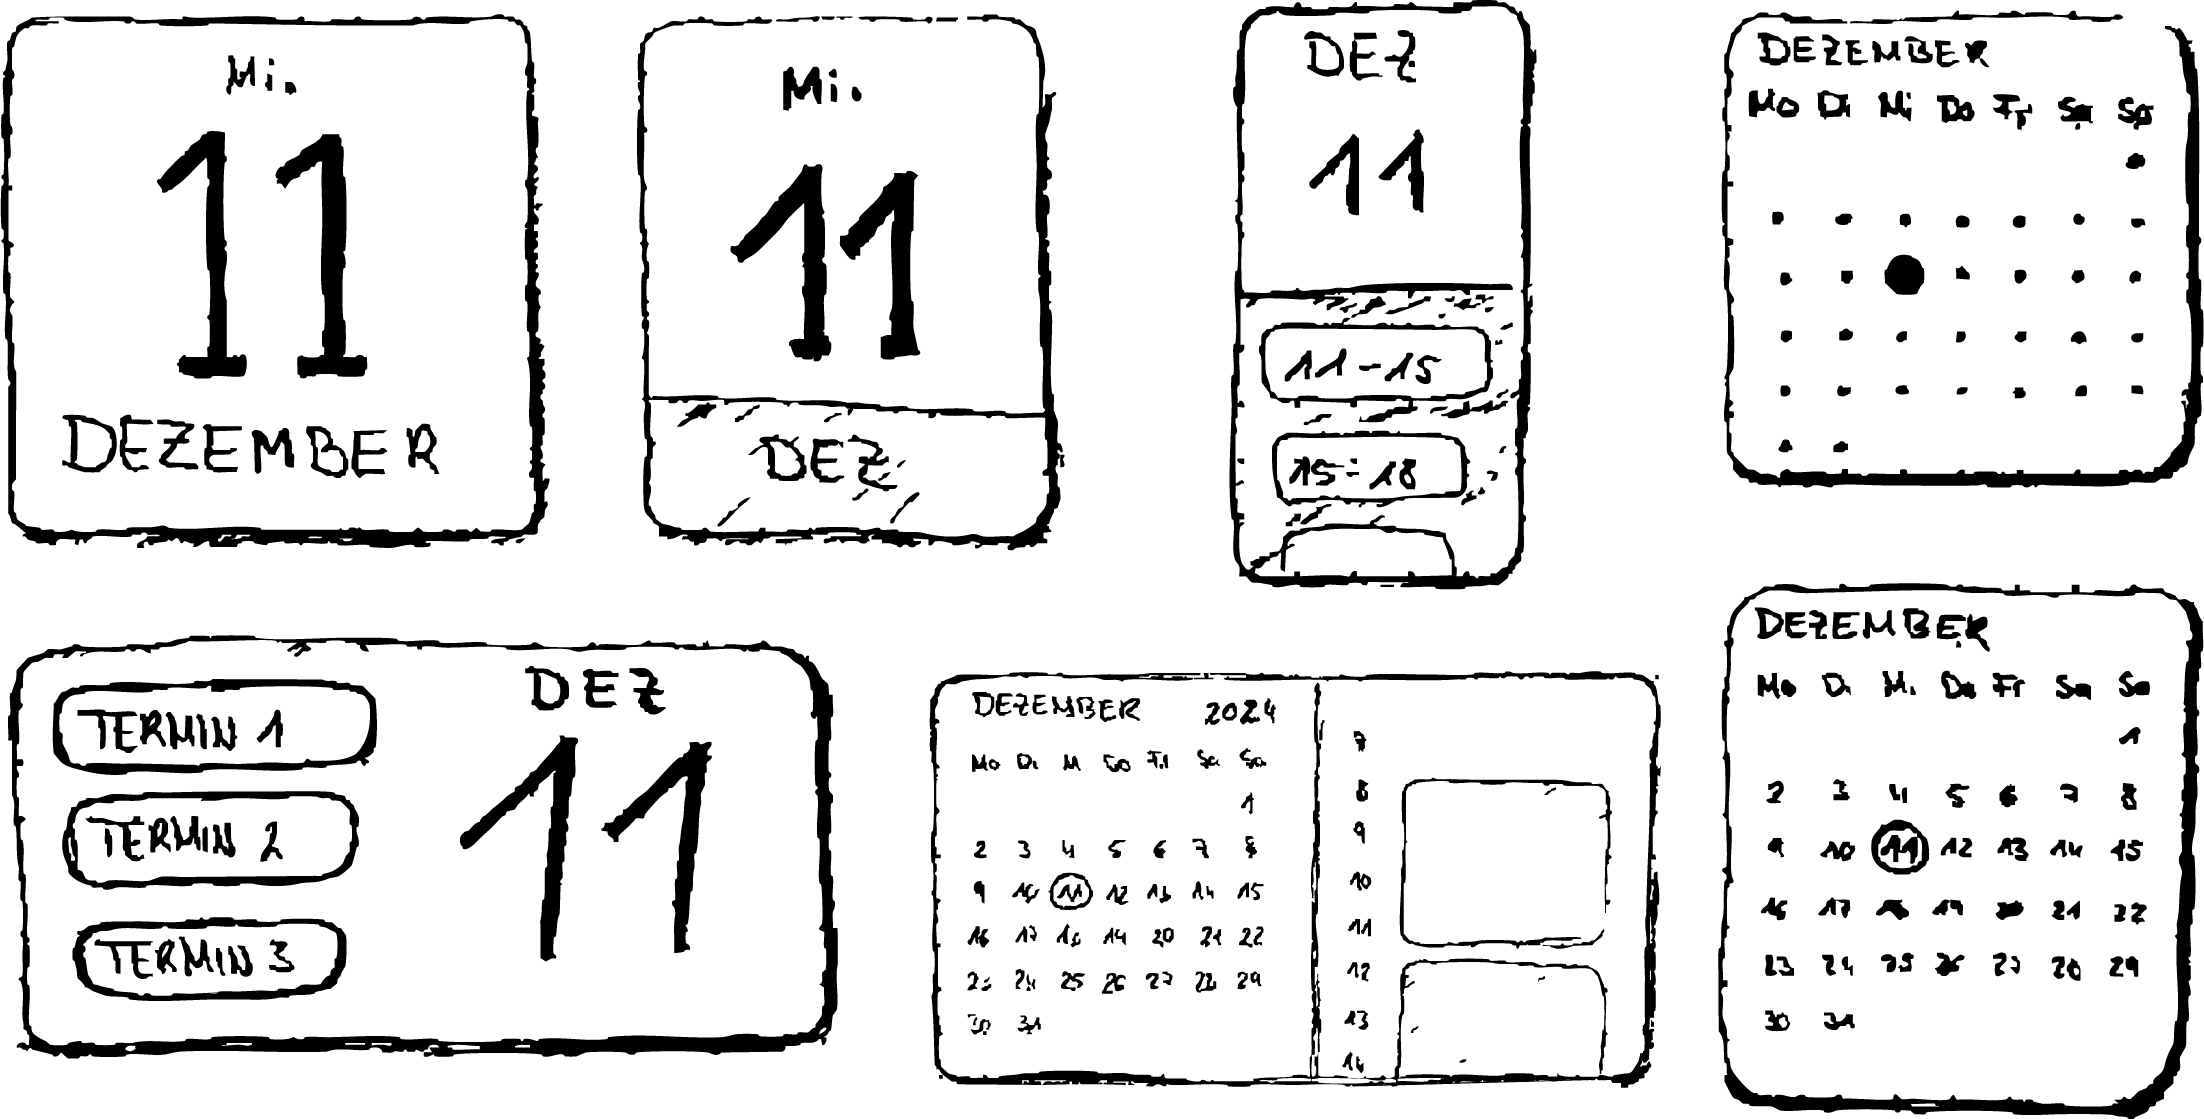 Mi.
11
DEZEMBER
Mi.
11
DEZ
DEZ
11
11-15
15-18
DEZEMBER
Mo Di Mi Do Fr Sa So
TERMIN 1
TERMIN 2
TERMIN 3
DEZ
11
DEZEMBER 2024
Mo Di M Do Fr Sa So
1
2 3 4 5 6 7 8
9 10 11 12 13 14 15
16 17 18 14 20 21 22
23 24 25 26 27 28 29
30 31
7
8
9
10
11
12
13
14
DEZEMBER
Mo Di Mi. Do Fr Sa So
1
2 3 4 5 6 7 8
9 10 11 12 13 14 15
16 17 18 19 20 21 22
23 24 25 26 27 28 29
30 31